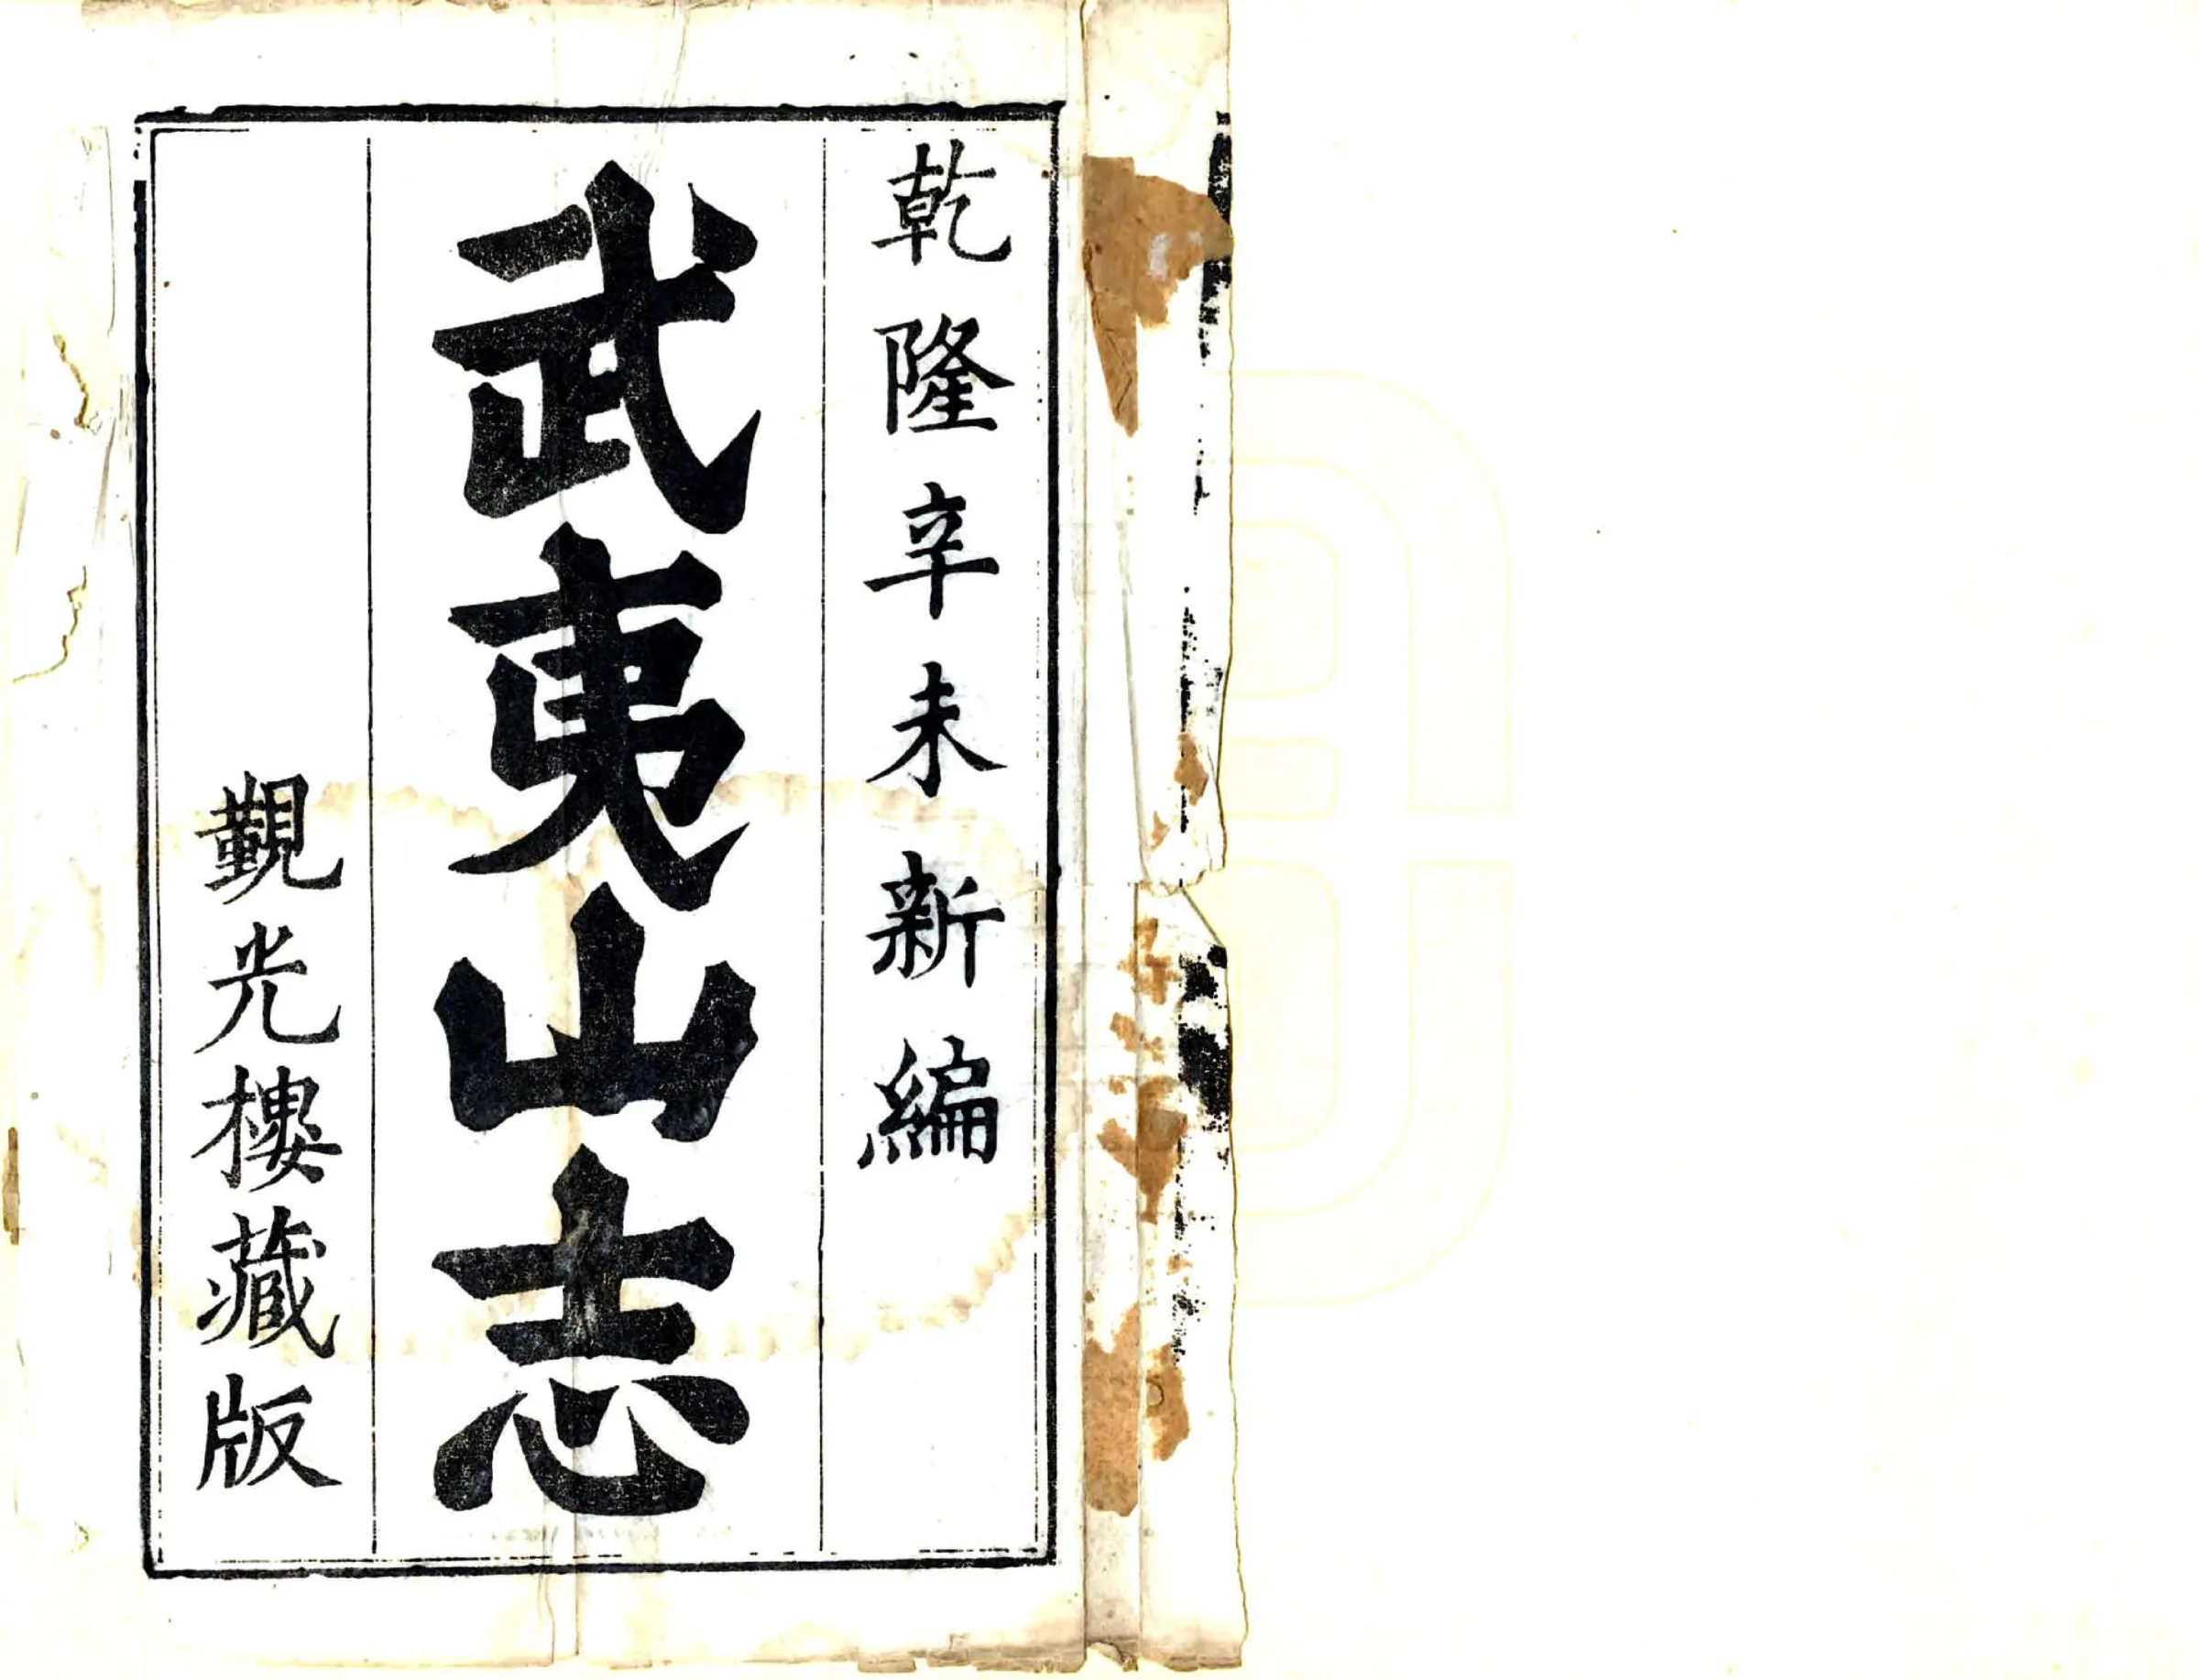 乾隆辛未新編
武夷山志
覲光樓藏版